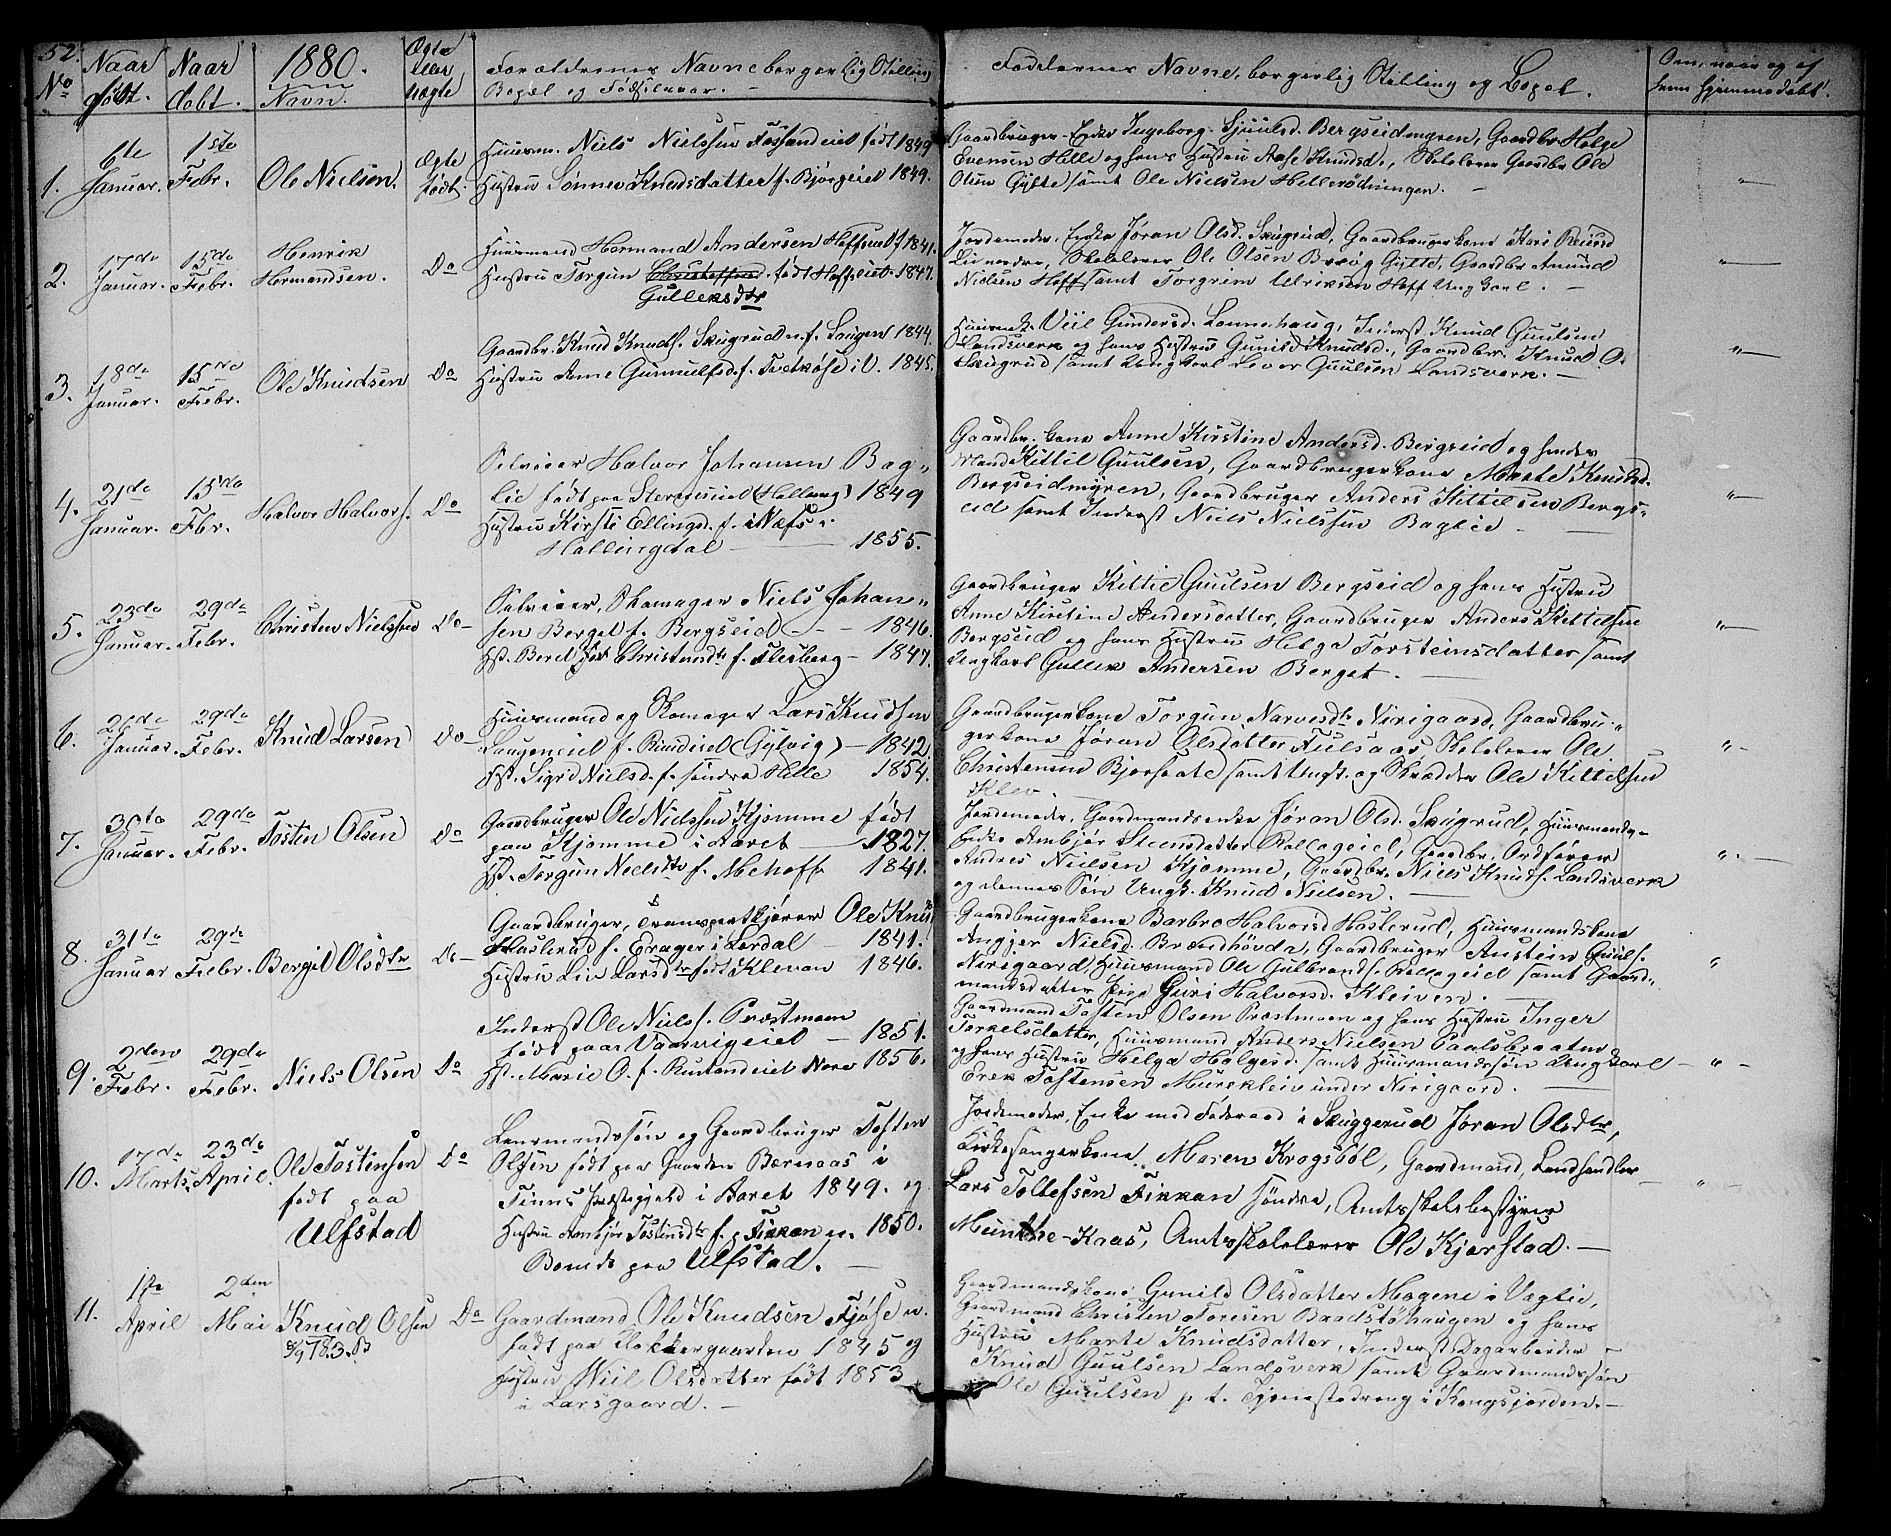 52.
No
Naar født.
Naar døbt.
1880.
Navn.
Ægte eller uægte
Forældrenes Navne borgerlig Stilling
Bopæl og Fødselsaar.
Faddernes Navne, borgerlig Stilling og Bopæl.
Om, naar og af
hvem hjemmedøbt.
1.
6te Januar.
1ste Febr.
Ole Nielsen.
Ægte født.
Huusm. Niels Nielssen født 1849
Hustru Sønnev Knudsdatter f. Bjørgeiet 1849.
Gaardbruger-Enke Ingeborg Sjuulsd. Bergseidmyren, Gaardbr. Helge
Evensen Helle og hans Hustru Aase Knudsd., Skolelærer Gaardbr Ole
Olsen Gytte samt Ole Nielsen Hellerødningen.
2.
17de Januar.
15de Febr.
Henrik Hermandsen.
Do
Huusmand Hermand Andersen Hoffseiet f 1841.
Hustru Torgun født Hoffseiet 1847.
Gulleksdtr
Jordemoder, Enke Jøran Olsd. Skugrud, Gaardbrugerkone Kari
Skolelærer Ole Olsen Gytte, Gaardbr Amund
Nielsen Hoff samt Torgrim Ulriksen Hoff Ungkarl.
3.
18de Januar.
15de Febr.
Ole Knudsen
Do
Gaardbr. Knud Knuds. Skugrud n. f. Haugen 1844.
Hustru Anne Gunnulfsd. f. i O. 1845.
Huusmk. Viil Gundersd. Lonnehaug, Inderst Knud Guulsen
Landsverk og hans Hustru Gunild Knudsd., Gaardbr. Knud O.
Skugrud samt Ungkarl Guulsen Landsverk.
4.
21de Januar.
15de Fbr.
Halvor Halvors.
Do
Selveier Halvor Johansen Bag-
lie født paa (Helling) 1849
Hustru Kirsti Ellingsd. f. i Næs i
Hallingdal 1855.
Gaardbr. kone Anne Kirstine Andersd. Bergseid og hendes
Mand Kittil Guulsen, Gaardbrugerkone Marte Knudsd.
Bergseidmyren, Gaardbruger Anders Kittilsen Bergs-
eid samt Inderst Niels Nielssen Baglie
5.
23de Januar.
29de Febr.
Christen Nielssen
Do
Selveier, Skomager Niels Johan-
sen Berget f. Bergseid 1846.
Hst. Beret Christensdtr f. Flesberg 1847.
Gaardbruger Kittil Guulsen Bergseid og hans Hustru
Anne Kirstine Andersdatter, Gaardbruger Anders Kittilsen
Bergseid og hans Hustru Helga Torsteinsdatter samt
Ungkarl Gullek Andersen Berget.
6.
26de Januar.
29de Febr.
Knud Larsen
Do
Huusmand og Skomager Lars Knudsen
Haugeneiet f. (Gytvig) 1842
Hst. Sigrid Nielsd. f. søndre Helle 1854.
Gaardbrugerkone Torgun Narvesdtr Nirigaard, Gaardbru-
gerkone Jøran Olsdatter Fulsaas Skolelærer Ole
Christensen samt Ungk. og Skrædder Ole Kittelsen
Kleiv.
7.
30te Januar.
29de Febr.
Tosten Olsen
Do
Gaardbruger Ole Nielssen Kjomme født
paa Kjomme i Aaret 1827.
Hst. Torgun Nielsdtr f. Mehoff 1841.
Jordemoder, Gaardmandsenke Jøran Olsd. Skugrud, Huusmands-
Enke Ambjør Steensdatter Rollageiet, Gaardbr. Ordfører
Andres Nielsen Kjomme, Gaardbr. Niels Knuds. Landsverk
og dennes Søn Ungk. Knud Nielsen.
8.
31te Januar
29de Febr.
Bergit Olsdtr
Do
Gaardbruger, Transportkjører Ole Knuds
Haslerud f. i Lerdal 1841.
Hustru Liv Larsdtr født Kleven 1846.
Gaardbrugerkone Barbro Halvorsd Haslerud, Huusmandskone
Angjer Nielsd. Gaardbruger Austein Guuls.
Nirigaard, Huusmand Ole Gulbrands. Rollageiet samt Gaard-
mandsdatter Pige Guri Halvorsd. Kleiven.
9.
2den Febr.
29de Febr.
Niels Olsen
Do
Inderst Ole Niels. Præstmoen
født paa Vaarvigeiet 1851.
Hst. Marie O. f. Nore 1856.
Gaardmand Tosten Olsen Præstmoen og hans Hustru Inger
Torkelsdatter, Huusmand Anders Nielsen Paalsbraaten
og hans Hustru Helga Helgesd. samt Huusmandssøn Ungkarl
Erek Tostensen Murekleiv under Nirigaard.
10.
17de Marts.
23de April.
Ole Tostensen
født paa
Ulfstad
Do
Lensmandssøn og Gaardbruger Tosten
Olsen født paa Gaarden Bærnaas i
Tinns Præstegjeld i Aaret 1849. og
Hustru Ambjør Tostensdtr f. p. Fikkan n. 1850.
Boende paa Ulfstad.
Jordemoder, Enke med Føderaad i Skuggerud Jøran Olsdtr,
Kirkesangerkone Maren Krogsbøl, Gaardmand, Landhandler
Lars Tollefsen Fikkan søndre, Amtsskolebestyrer
Munthe-Kaas, Amtsskolelærer Ole Kjærstad.
11.
1ste April
2den Mai
Knud Olsen
Do
Gaardmand Ole Knudsen Fjøse n.
født paa 1845 og
Hustru Viil Olsdatter født 1853
i Larsgaard.
Gaardmandskone Gunild Olsdatter Mogene i Veglie,
Gaardmand Christen Toresen Baadstøhaugen og hans
Hustru Marte Knudsdatter, Inderst Dagarbeider
Knud Guulsen Landsverk samt Gaardmandssøn
Ole Guulsen p. t. Tjenestedreng i Kongsjorden.